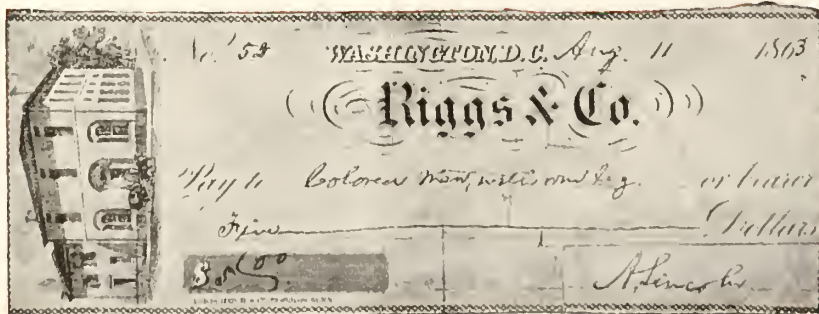 No. 52 WASHINGTON, D.C. Aug. 11 1863
Riggs & Co.
Pay to Colored man, with one leg. or bearer
Five Dollars
$5.00 A. Lincoln